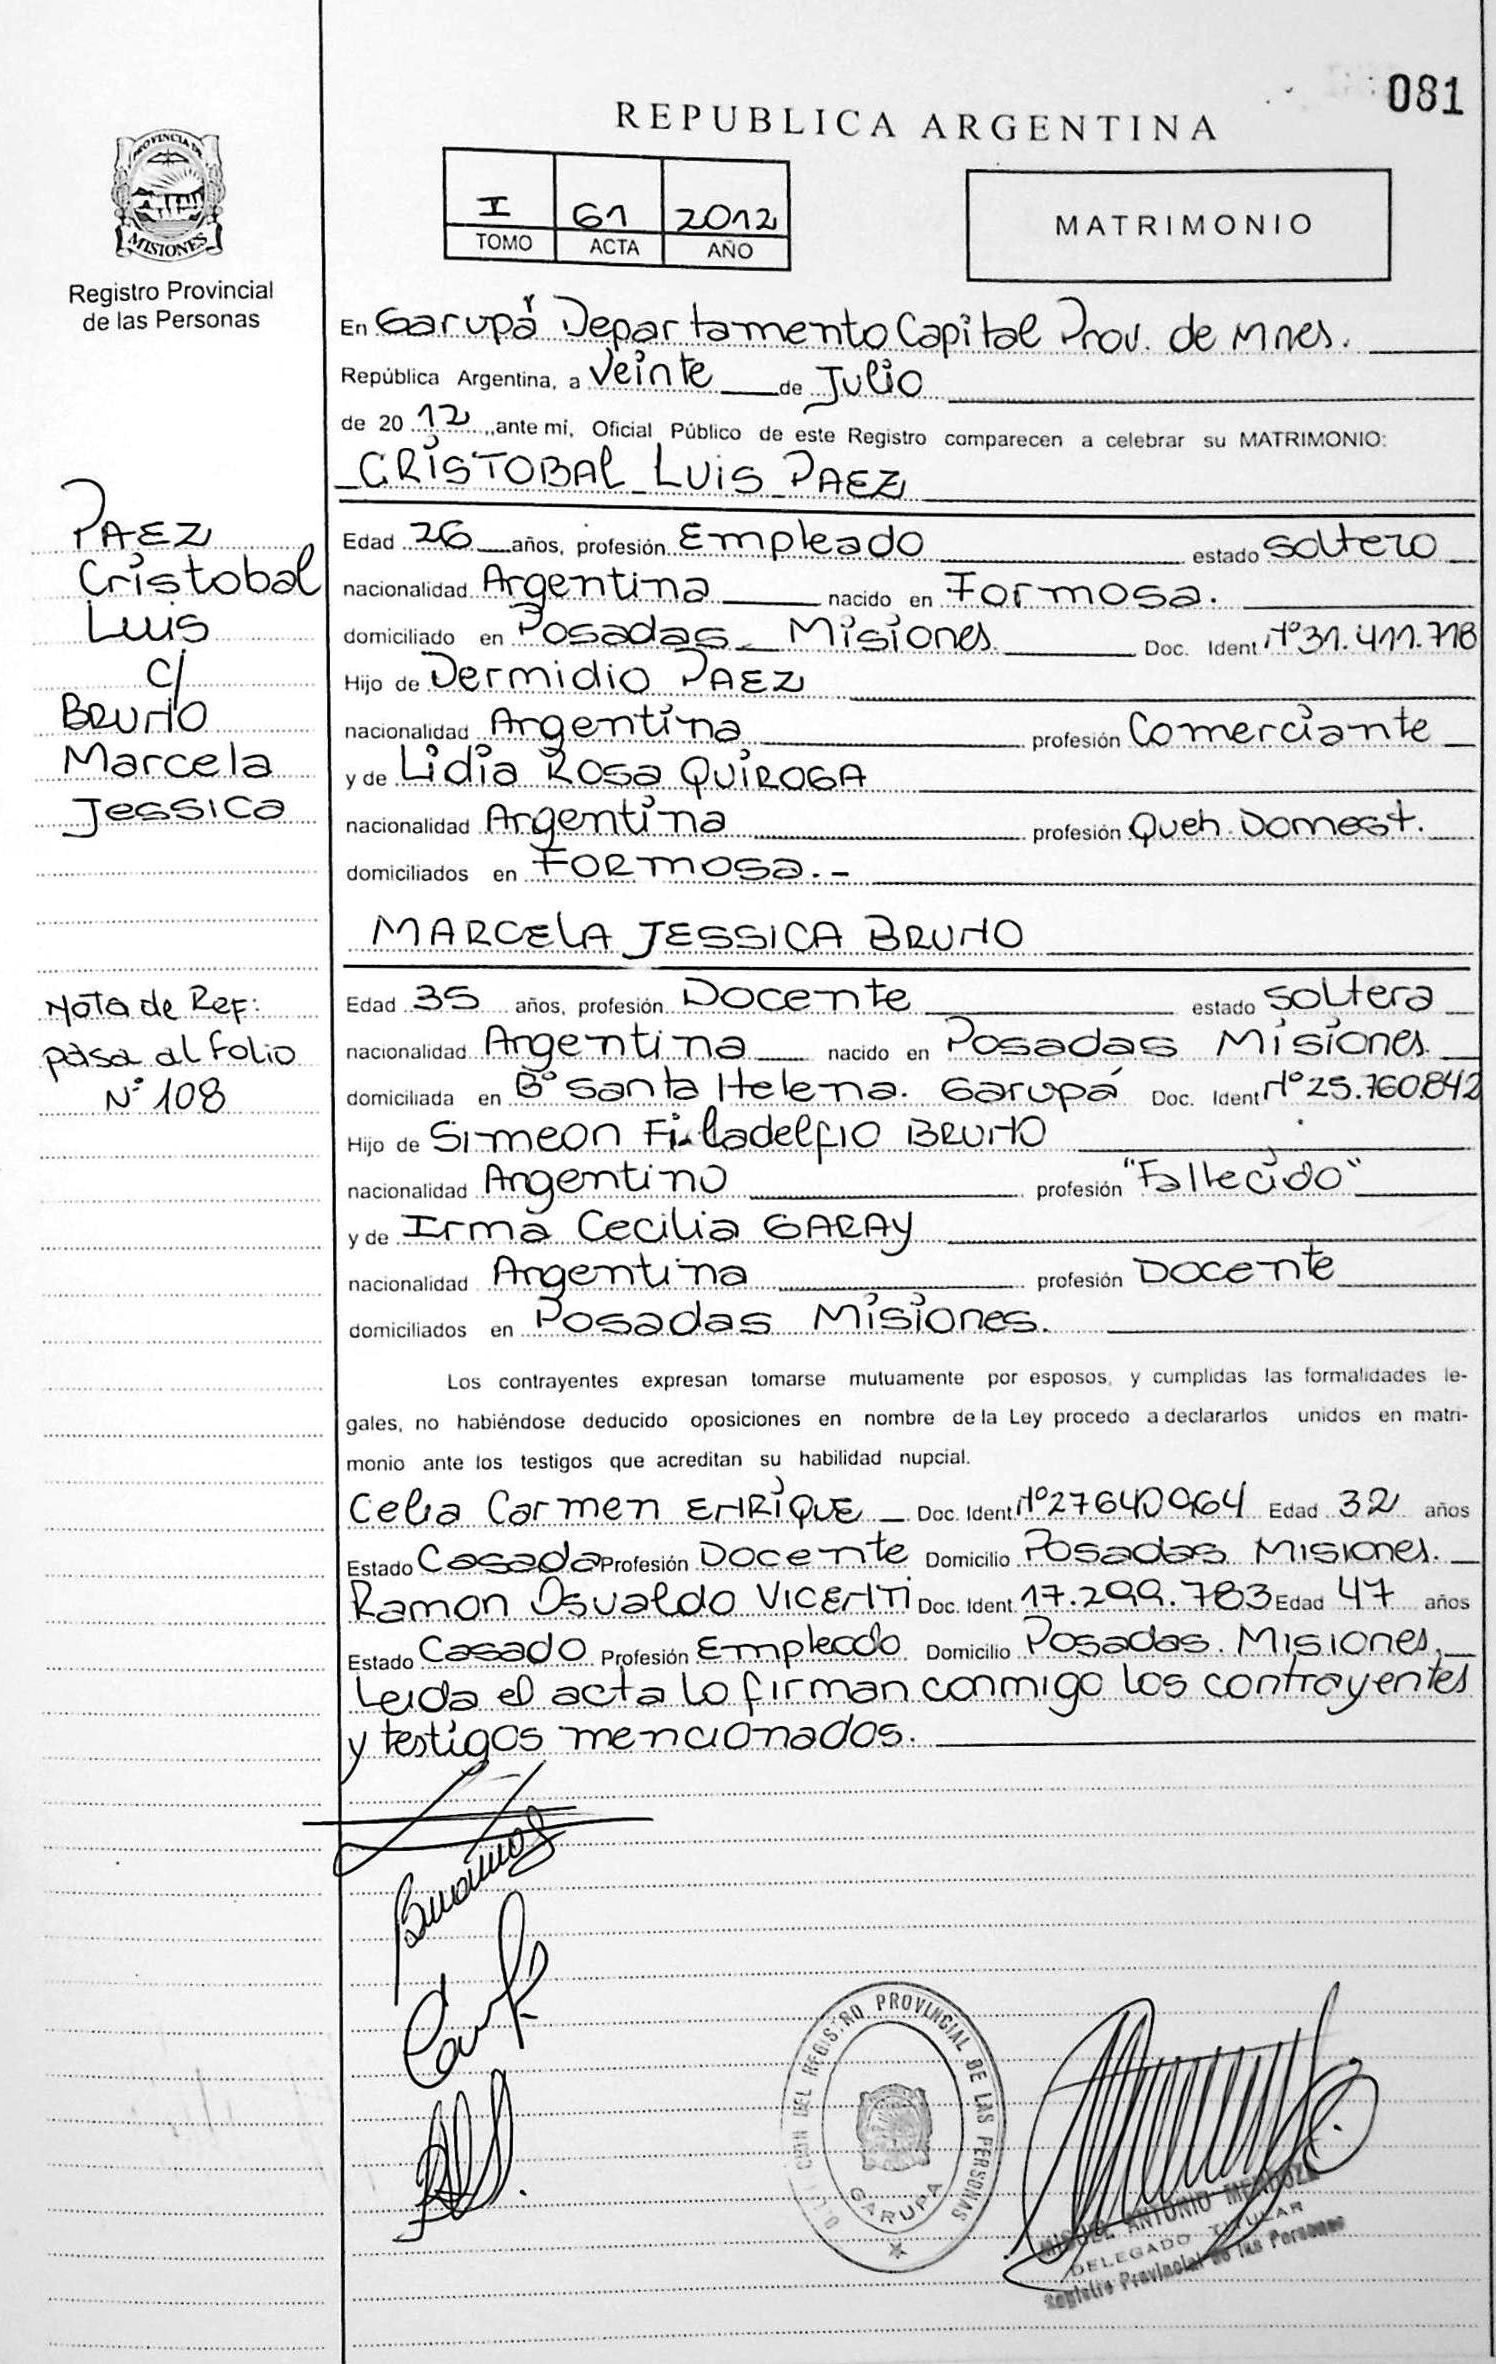 081
REPUBLICA ARGENTINA
PROVINCIA DE
MISIONES
Registro Provincial
de las Personas
I 61 2012
TOMO ACTA AÑO
MATRIMONIO
En Garupá Departamento Capital Prov. de Mnes.
República Argentina, a Veinte de Julio
de 2012, ante mí, Oficial Público de este Registro comparecen a celebrar su MATRIMONIO:
CRISTOBAL LUIS PAEZ
PAEZ
Cristobal
Luis
c/
BRUNO
Marcela
Jessica
Edad 26 años, profesión Empleado estado soltero
nacionalidad Argentina nacido en Formosa.
domiciliado en Posadas Misiones Doc. Ident N° 31.411.718
Hijo de Dermidio PAEZ
nacionalidad Argentina profesión Comerciante
y de Lidia Rosa QUIROGA
nacionalidad Argentina profesión Queh. Domest.
domiciliados en Formosa.-
MARCELA JESSICA BRUNO
Nota de Ref:
pasa al folio
N° 108
Edad 35 años, profesión Docente estado soltera
nacionalidad Argentina nacido en Posadas Misiones
domiciliada en B° Santa Helena. Garupá Doc. Ident N° 25.760.842
Hijo de Simeon Filadelfio BRUNO
nacionalidad Argentino profesión "Fallecido"
y de Irma Cecilia GARAY
nacionalidad Argentina profesión Docente
domiciliados en Posadas Misiones.
Los contrayentes expresan tomarse mutuamente por esposos, y cumplidas las formalidades le-
gales, no habiéndose deducido oposiciones en nombre de la Ley procedo a declararlos unidos en matri-
monio ante los testigos que acreditan su habilidad nupcial.
Celia Carmen ENRIQUE Doc. Ident. N° 27640964 Edad 32 años
Estado Casada Profesión Docente Domicilio Posadas Misiones.
Ramon Osvaldo VICENTI Doc. Ident. 17.299.783 Edad 47 años
Estado Casado Profesión Empleado Domicilio Posadas. Misiones.
Leida el acta lo firman conmigo los contrayentes
y testigos mencionados.
DEL REGISTRO PROVINCIAL DE LAS PERSONAS
GARUPA
MIGUEL ANTONIO MENDOZA
DELEGADO TITULAR
Registro Provincial de las Personas